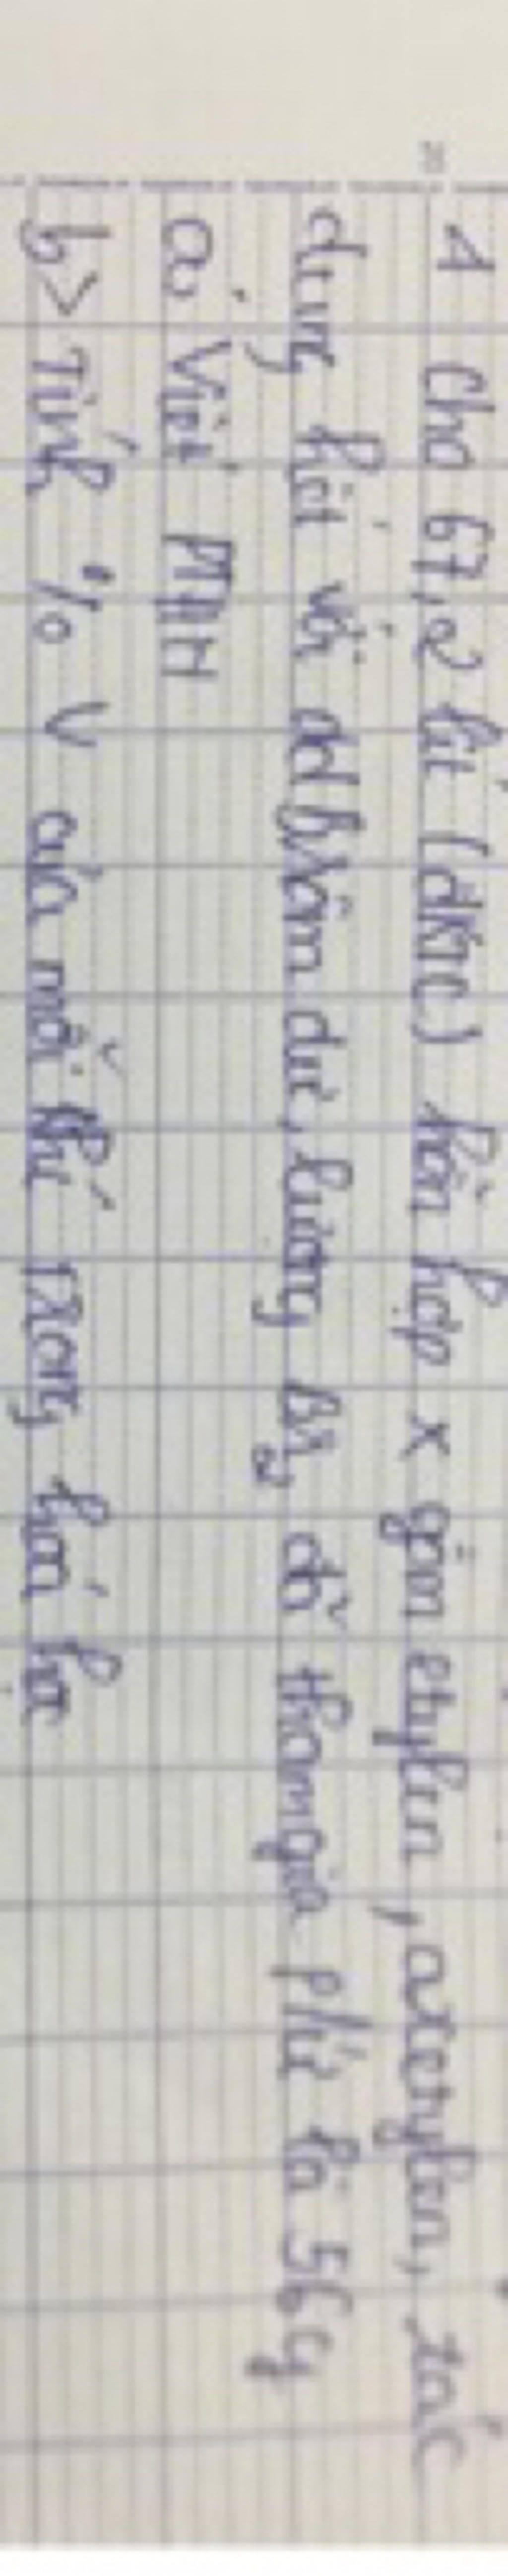 1 Cho 67,2 lít (đktc) hỗn hợp x gồm etylen, axetylen, tác
dụng hết với dd Brôm dư, lượng Br2 đã tham gia pứ là 56g
a, Viết PTHH
b> Tính % V của mỗi khí trong hh